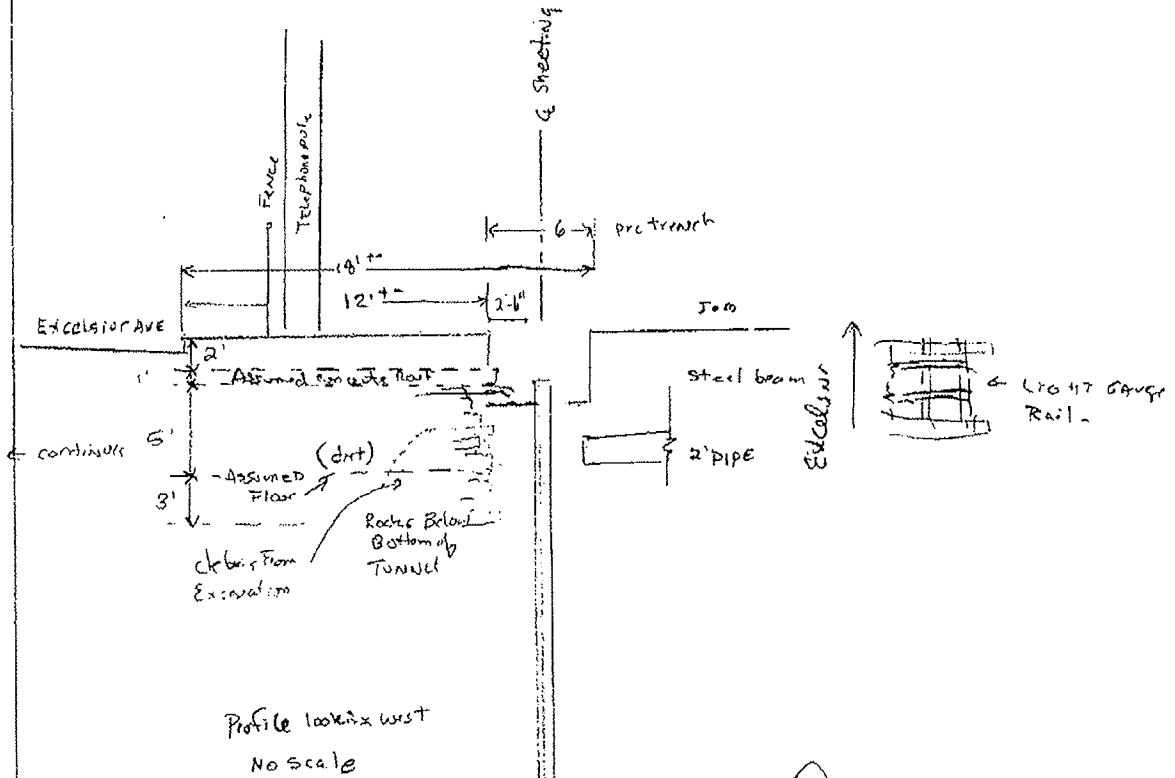 ℄ Sheeting
Fence
Telephone pole
6 pre trench
18' +-
12' +-
2'-6"
Excelsior Ave
2'
1'
Assumed concrete Roof
Steel beam
Excelsior
← Light Gauge
Rail.
5'
← continues
(dirt)
- Assumed
Floor
2' PIPE
3'
Rocks Below
Bottom of
TUNNEL
debris From
Excavation
Profile looking west
No Scale